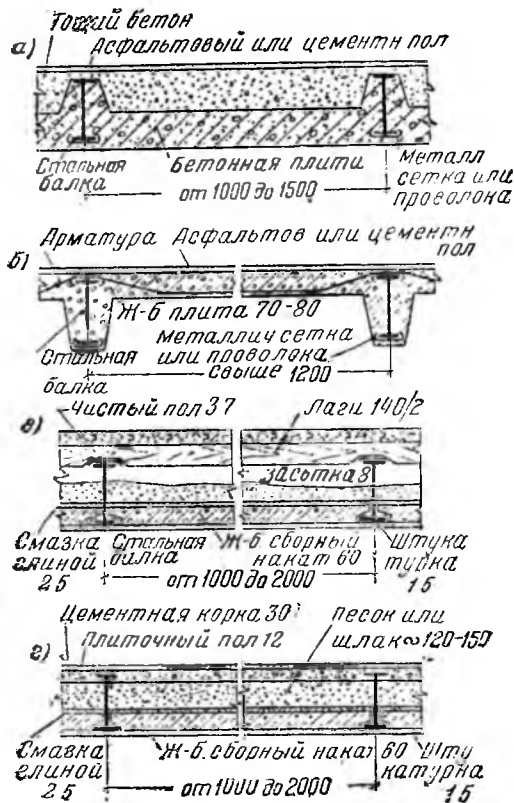 Тощий бетон
а) Асфальтовый или цементн пол
Стальная балка
Бетонная плити
Металл сетка или проволока
от 1000 до 1500
б) Арматура Асфальтов или цементн пол
Ж-б плита 70-80
Металлич сетка или проволока
Стальная балка
свыше 1200
в) Чистый пол 37
Лаги 140/2
Засыпка 8
Смазка глиной 25
Стальная балка
Ж-б. сборный накат 60
Штукатурка 15
от 1000 до 2000
г) Цементная корка 30
Плиточный пол 12
Песок или шлак ∾120-150
Смазка глиной 25
Ж-б. сборный накат 60
Штукатурка 15
от 1000 до 2000